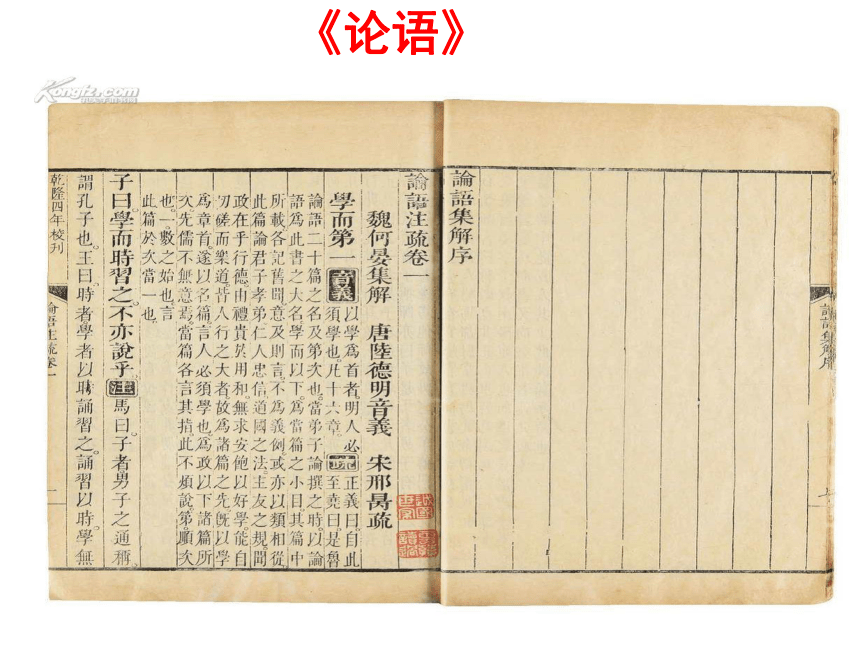 《论语》
Kongfz.com
論語集解序
論語集解序
七
論語注疏卷一
魏何晏集解 唐陸德明音義 宋邢昺疏
學而第一 音義 以學爲首者明人必
須學也。凡十六章。 疏 正義曰。自此
至堯曰。是魯
論語二十篇之名及第次也。當弟子論撰之時。以論
語爲此書之大名。學而以下。爲當篇之小目。其篇中
所載各記舊聞。意及則言。不爲義例。或亦以類相從。
此篇論君子孝弟仁人忠信道國之法。主友之規。聞
政在乎行德。由禮貴於用和。無求安飽以好學。能自
切磋而樂道。皆人行之大者。故爲諸篇之先。既以學
爲章首。遂以名篇。言人必須學也。爲政以下諸篇所
次。先儒不無意焉。當篇各言其指。此不煩說。第。順次
也。一。數之始也。言
此篇於次當一也。
子曰。學而時習之。不亦說乎。 注 馬曰。子者男子之通稱。
謂孔子也。王曰。時者學者以時誦習之。誦習以時。學無
乾隆四年校刊
論語注疏卷一
一